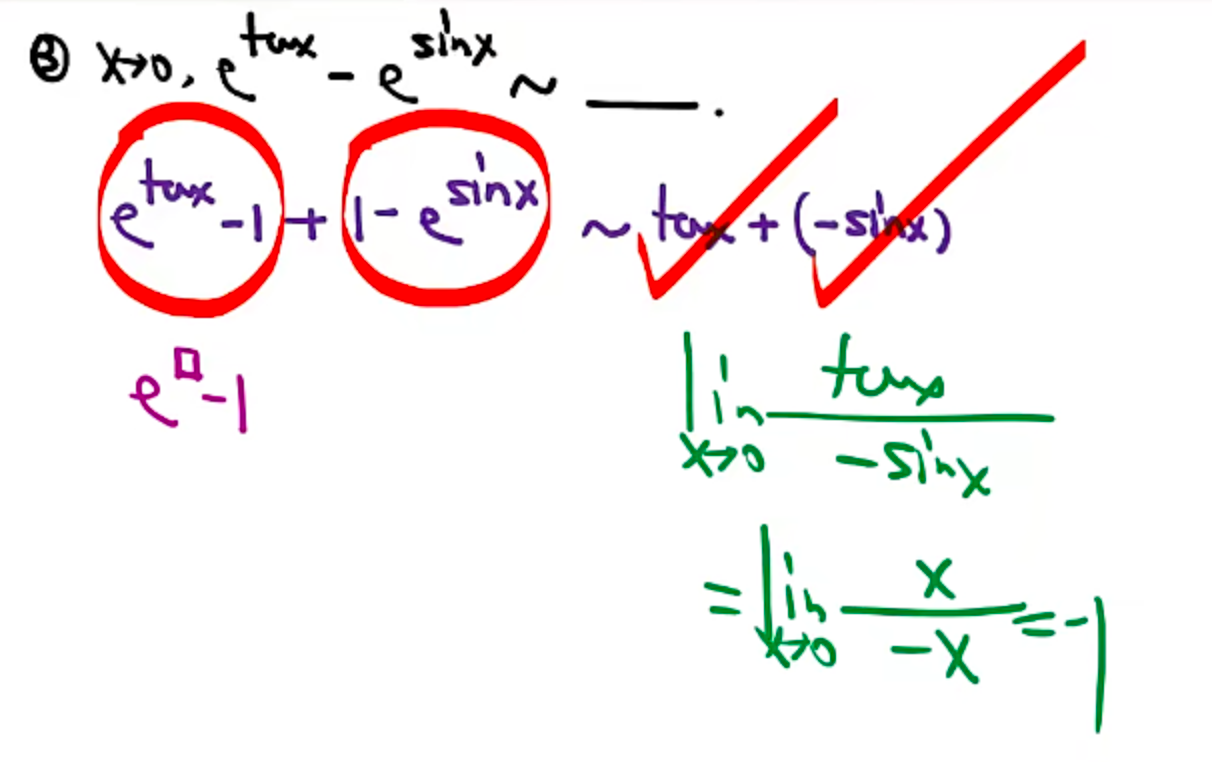 ③ x→0, e^{tanx} - e^{sinx} ~ ____.
e^{tanx} -1 + 1 - e^{sinx} ~ tanx + (-sinx)
e^□ -1
lim_{x→0} tanx / -sinx
= lim_{x→0} x / -x = -1